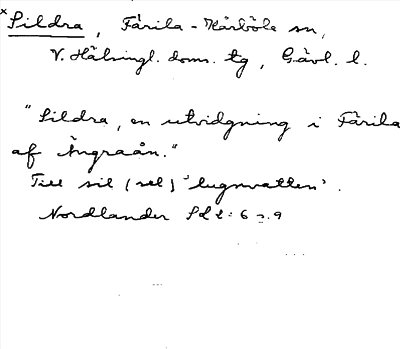 x Sildra, Färila-Kårböle sn,
V. Hälsingl. doms. tg, Gävl. l.
"Sildra, en utvidgning i Färila
af Ängraån."
Till sil (sel) 'lugnvatten'.
Nordlander Sd 2:6 s. 9